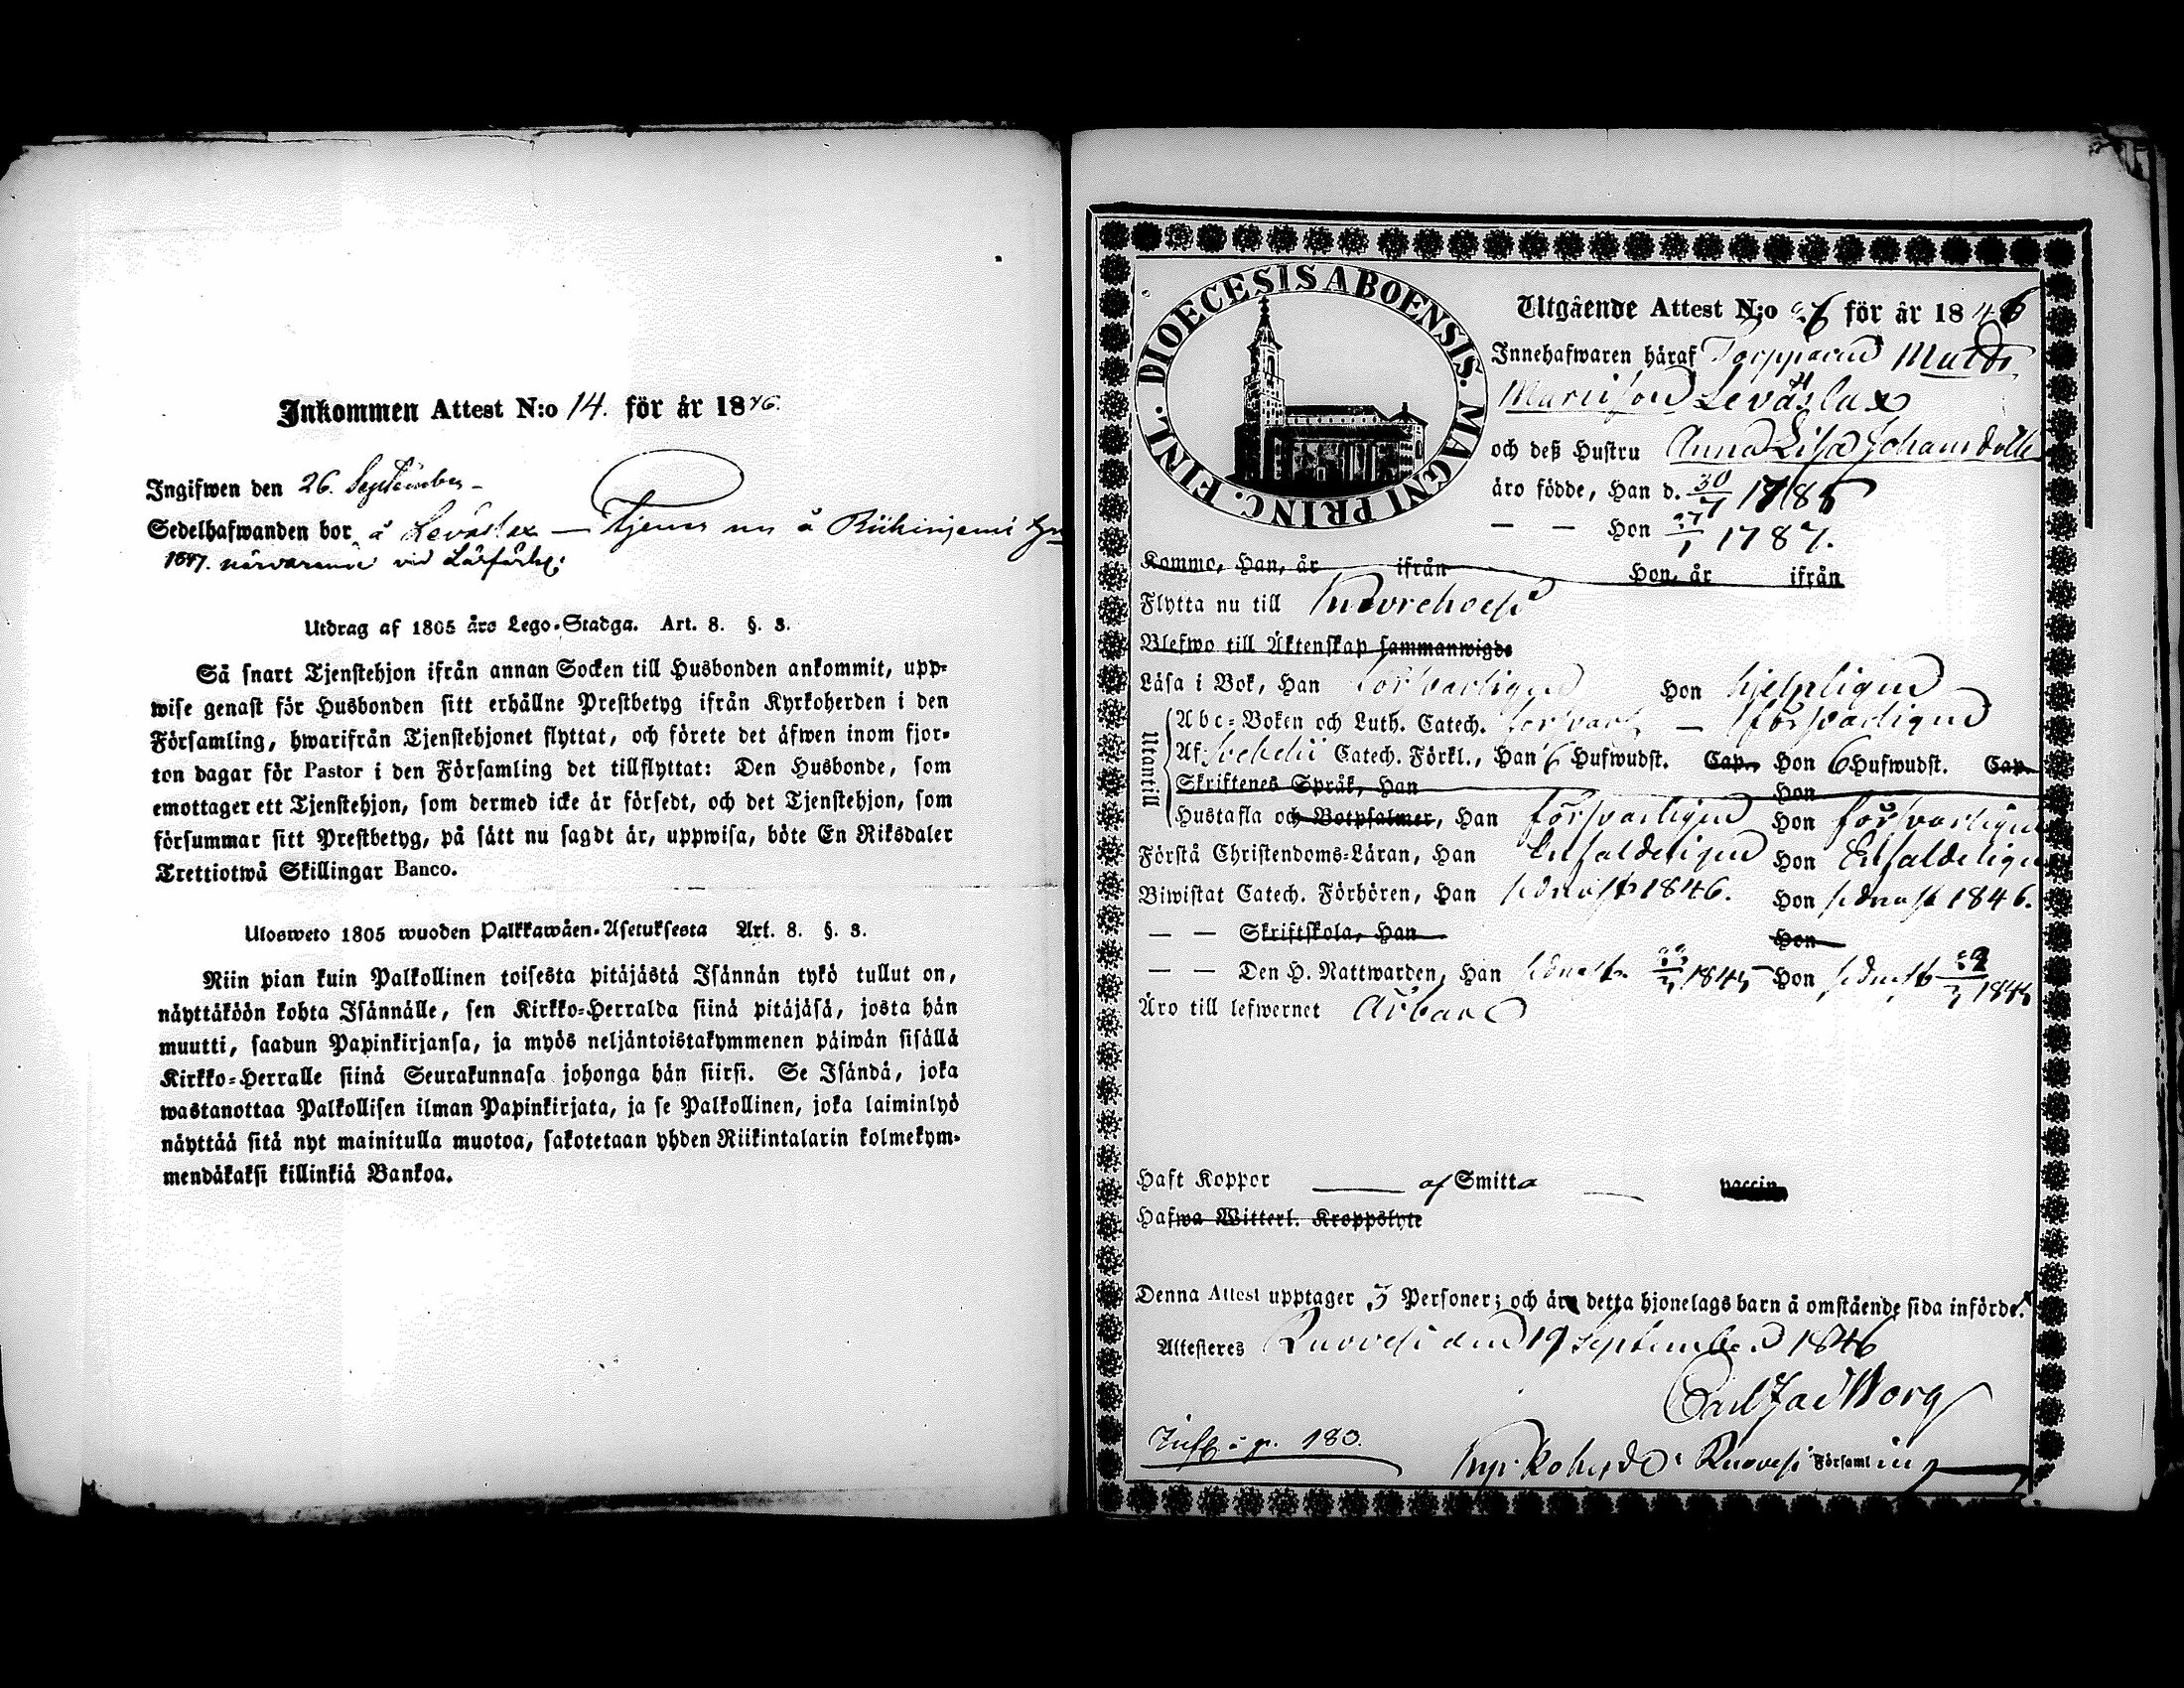 Inkommen Attest N:o 14. för år 1846.
Ingifwen den 26. September
Sedelhafwanden bor å Leväslax — tjenar nu å Riihiniemi
1847. närvarande vid Läsförhör.
Utdrag af 1805 års Lego-Stadga. Art. 8. §. 3.
Så snart Tjenstehjon ifrån annan Socken till Husbonden ankommit, upp-
wise genast för Husbonden sitt erhållne Prestbetyg ifrån Kyrkoherden i den
Församling, hwarifrån Tjenstehjonet flyttat, och förete det äfwen inom fjor-
ton dagar för Pastor i den Församling det tillflyttat: Den Husbonde, som
emottager ett Tjenstehjon, som dermed icke är försedt, och det Tjenstehjon, som
försummar sitt Prestbetyg, på sätt nu sagdt är, uppwisa, böte En Riksdaler
Trettiotwå Skillingar Banco.
Ulosweto 1805 wuoden Palkkawäen-Asetuksesta Art. 8. §. 3.
Niin pian kuin Palkollinen toisesta pitäjästä Isännän tykö tullut on,
näyttäköön kohta Isännälle, sen Kirkko-Herralda siinä pitäjäsä, josta hän
muutti, saadun Papinkirjansa, ja myös neljäntoistakymmenen päiwän sisällä
Kirkko-Herralle siinä Seurakunnasa johonga hän siirsi. Se Isändä, joka
wastanottaa Palkollisen ilman Papinkirjata, ja se Palkollinen, joka laiminlyö
näyttää sitä nyt mainitulla muotoa, sakotetaan yhden Riikintalarin kolmekym-
mendäkaksi killinkiä Bankoa.
DIOECESIS ABOENSIS. MAGNI PRINC. FINL.
Utgående Attest N:o 26 för år 1846
Innehafwaren häraf Torpparen Matts
Mariison Leväslax
och deß Hustru Anna Lisa Johansdotter
äro födde, Han d. 30/7 1785
— — Hon 27/1 1787.
Kommo, Han, år ifrån Hon, år ifrån
Flytta nu till Kuorehvesi
Blefwo till Äktenskap sammanwigde
Läsa i Bok, Han försvarligen Hon hjelpligen
Utantill
Abc-Boken och Luth. Catech. försvarl — försvarligen
Af Svebelii Catech. Förkl., Han 6 Hufwudst. Cap., Hon 6 Hufwudst. Cap.
Skriftenes Språk, Han Hon
Hustafla och Botpsalmer, Han försvarligen Hon försvarligen
Förstå Christendoms-Läran, Han Enfaldeligen Hon Enfaldeligen
Biwistat Catech. Förhören, Han sednast 1846. Hon sednast 1846.
— — Skriftskola, Han Hon
— — Den H. Nattwarden, Han sednast 1845 Hon sednast
Äro till lefwernet Ärbara
Haft Koppor af Smitta vaccin
Hafwa Witterl. Kroppslyte
Denna Attest upptager 3 Personer; och äro detta hjonelags barn å omstående sida införde.
Attesteres Ruovesi den 19 September 1846
Carl Jac Worg
Infl. i p. 180.
Kyrkoherde i Ruovesi Församling